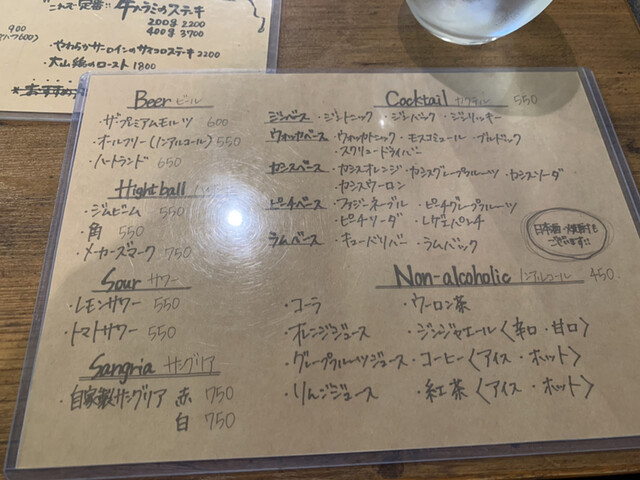 これぞ定番!! 牛ハラミのステキ
200g 2200
400g 3700
900
・やわらかサーロインのサイコロステキ 2200
・大山鶏のロースト 1800
Beer ビール
・ザ・プレミアムモルツ 600
・オールフリー(ノンアルコール) 550
・ハートランド 650
Hightball
・ジムビーム 550
・角 550
・メーカーズマーク 750
Sour サワー
・レモンサワー 550
・トマトサワー 550
Sangria サングリア
・自家製サングリア 赤 750
白 750
Cocktail カクテル 550
ジンベース ・ジントニック ・ジンバック ・ジンリッキー
ウォッカベース ・ウォッカトニック ・モスコミュール ・ブルドック
・スクリュードライバー
カシスベース ・カシスオレンジ ・カシスグレープフルーツ ・カシスソーダ
・カシスウーロン
ピーチベース ・ファジーネーブル ・ピーチグレープフルーツ
・ピーチソーダ ・レゲエパンチ
ラムベース ・キューバリバー ・ラムバック
日本酒・焼酎も
ございます!!
Non-alcoholic ノンアルコール 450
・コーラ ・ウーロン茶
・オレンジジュース ・ジンジャエール〈辛口・甘口〉
・グレープフルーツジュース ・コーヒー〈アイス・ホット〉
・りんごジュース ・紅茶〈アイス・ホット〉